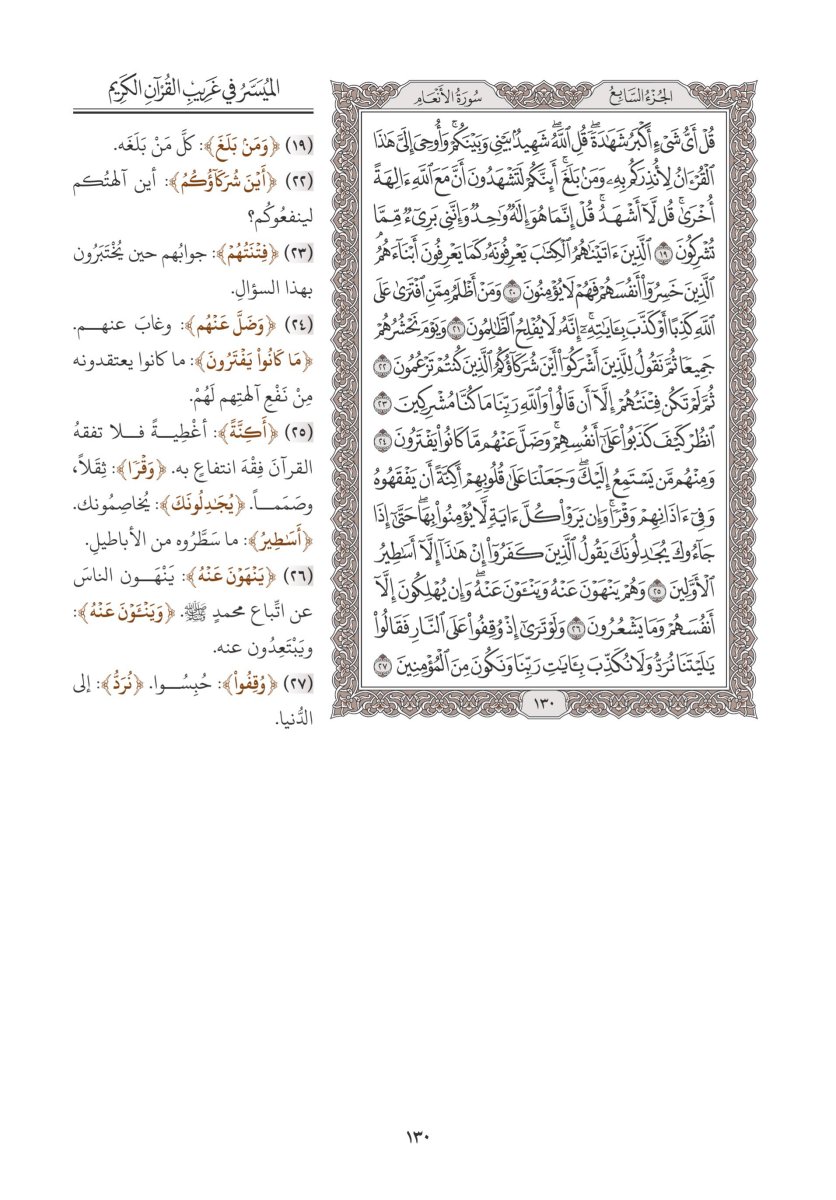 الجُزْءُ السَّابِعُ
سُورَةُ الأَنْعَامِ
قُلْ أَيُّ شَيْءٍ أَكْبَرُ شَهَٰدَةٗۖ قُلِ ٱللَّهُۖ شَهِيدُۢ بَيْنِي وَبَيْنَكُمۡۚ وَأُوحِيَ إِلَيَّ هَٰذَا
ٱلۡقُرۡءَانُ لِأُنذِرَكُم بِهِۦ وَمَنۢ بَلَغَۚ أَئِنَّكُمۡ لَتَشۡهَدُونَ أَنَّ مَعَ ٱللَّهِ ءَالِهَةً
أُخۡرَىٰۚ قُل لَّآ أَشۡهَدُۚ قُلۡ إِنَّمَا هُوَ إِلَٰهٞ وَٰحِدٞ وَإِنَّنِي بَرِيٓءٞ مِّمَّا
تُشۡرِكُونَ ١٩ ٱلَّذِينَ ءَاتَيۡنَٰهُمُ ٱلۡكِتَٰبَ يَعۡرِفُونَهُۥ كَمَا يَعۡرِفُونَ أَبۡنَآءَهُمُۘ
ٱلَّذِينَ خَسِرُوٓاْ أَنفُسَهُمۡ فَهُمۡ لَا يُؤۡمِنُونَ ٢٠ وَمَنۡ أَظۡلَمُ مِمَّنِ ٱفۡتَرَىٰ عَلَى
ٱللَّهِ كَذِبًا أَوۡ كَذَّبَ بِـَٔايَٰتِهِۦٓۚ إِنَّهُۥ لَا يُفۡلِحُ ٱلظَّٰلِمُونَ ٢١ وَيَوۡمَ نَحۡشُرُهُمۡ
جَمِيعٗا ثُمَّ نَقُولُ لِلَّذِينَ أَشۡرَكُوٓاْ أَيۡنَ شُرَكَآؤُكُمُ ٱلَّذِينَ كُنتُمۡ تَزۡعُمُونَ ٢٢
ثُمَّ لَمۡ تَكُن فِتۡنَتُهُمۡ إِلَّآ أَن قَالُواْ وَٱللَّهِ رَبِّنَا مَا كُنَّا مُشۡرِكِينَ ٢٣
ٱنظُرۡ كَيۡفَ كَذَبُواْ عَلَىٰٓ أَنفُسِهِمۡۚ وَضَلَّ عَنۡهُم مَّا كَانُواْ يَفۡتَرُونَ ٢٤
وَمِنۡهُم مَّن يَسۡتَمِعُ إِلَيۡكَۖ وَجَعَلۡنَا عَلَىٰ قُلُوبِهِمۡ أَكِنَّةً أَن يَفۡقَهُوهُ
وَفِيٓ ءَاذَانِهِمۡ وَقۡرٗاۚ وَإِن يَرَوۡاْ كُلَّ ءَايَةٖ لَّا يُؤۡمِنُواْ بِهَاۖ حَتَّىٰٓ إِذَا
جَآءُوكَ يُجَٰدِلُونَكَ يَقُولُ ٱلَّذِينَ كَفَرُوٓاْ إِنۡ هَٰذَآ إِلَّآ أَسَٰطِيرُ
ٱلۡأَوَّلِينَ ٢٥ وَهُمۡ يَنۡهَوۡنَ عَنۡهُ وَيَنۡـَٔوۡنَ عَنۡهُۖ وَإِن يُهۡلِكُونَ إِلَّآ
أَنفُسَهُمۡ وَمَا يَشۡعُرُونَ ٢٦ وَلَوۡ تَرَىٰٓ إِذۡ وُقِفُواْ عَلَى ٱلنَّارِ فَقَالُواْ
يَٰلَيۡتَنَا نُرَدُّ وَلَا نُكَذِّبَ بِـَٔايَٰتِ رَبِّنَا وَنَكُونَ مِنَ ٱلۡمُؤۡمِنِينَ ٢٧
١٣٠
المُيَسَّرُ في غَرِيبِ القُرْآنِ الكَرِيمِ
(١٩) ﴿وَمَنۢ بَلَغَ﴾: كلَّ مَنْ بَلَغَه.
(٢٢) ﴿أَيۡنَ شُرَكَآؤُكُمُ﴾: أين آلهتُكم
لينفعُوكُم؟
(٢٣) ﴿فِتۡنَتُهُمۡ﴾: جوابُهم حين يُخْتَبَرُون
بهذا السؤالِ.
(٢٤) ﴿وَضَلَّ عَنۡهُم﴾: وغابَ عنهم.
﴿مَا كَانُواْ يَفۡتَرُونَ﴾: ما كانوا يعتقدونه
مِنْ نَفْعِ آلهتِهم لَهُمْ.
(٢٥) ﴿أَكِنَّةً﴾: أغْطِيةً فلا تفقهُ
القرآنَ فِقْهَ انتفاعٍ به. ﴿وَقۡرٗا﴾: ثِقَلاً،
وصَمَماً. ﴿يُجَٰدِلُونَكَ﴾: يُخاصِمُونك.
﴿أَسَٰطِيرُ﴾: ما سَطَّرُوه من الأباطيلِ.
(٢٦) ﴿يَنۡهَوۡنَ عَنۡهُ﴾: يَنْهَون الناسَ
عن اتِّباع محمدٍ ﷺ. ﴿وَيَنۡـَٔوۡنَ عَنۡهُ﴾:
ويَبْتَعِدُون عنه.
(٢٧) ﴿وُقِفُواْ﴾: حُبِسُوا. ﴿نُرَدُّ﴾: إلى
الدُّنيا.
١٣٠